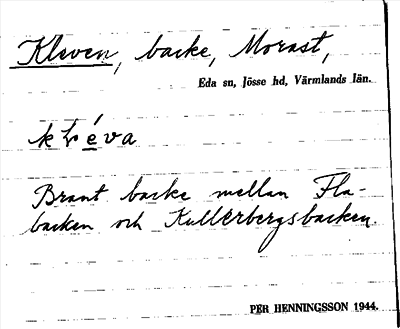 Kleven, backe, Morast,
Eda sn, Jösse hd, Värmlands län.
Brant backe mellan Fla-
backen och Kullerbergsbacken.
PER HENNINGSSON 1944.